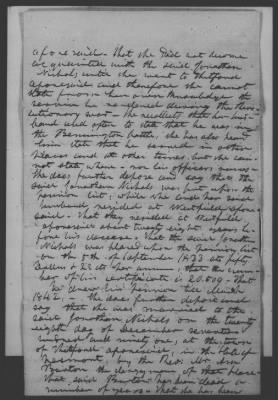 aforesaid. That she did not become
acquainted with the said Jonathan
Nichols until she went to Thetford
aforesaid and therefore she cannot
state from her own knowledge the
service he performed during the Rev-
olutionary War. She recollects that her hus-
band used often to state that he was in
the Bennington battle, she has also heard
him state that he served in other
places and at other times, but she can-
not state when nor his officers names.
She does further depose and say that the
said Jonathan Nichols was put upon the
pension list, while she and her said
husband resided at Westfield afore-
said. That they resided at Westfield
aforesaid about twenty eight years be-
fore his decease. That the said Jonathan
Nichols was placed upon the pension list
on the 5th of September 1833 at fifty
Dollars & 23 cts per annum, that the num-
ber of his certificate is 20.509. That
he drew his pension till March
1842. She does further depose and
say that she was married to the
said Jonathan Nichols on the twenty
eighth day of December seventeen
hundred and ninety one, at the town
of Thetford aforesaid, in the State of
Vermont, by the Rev. Asa
Burton the clergyman of that place.
That said Burton has been dead a
number of years. That she has been